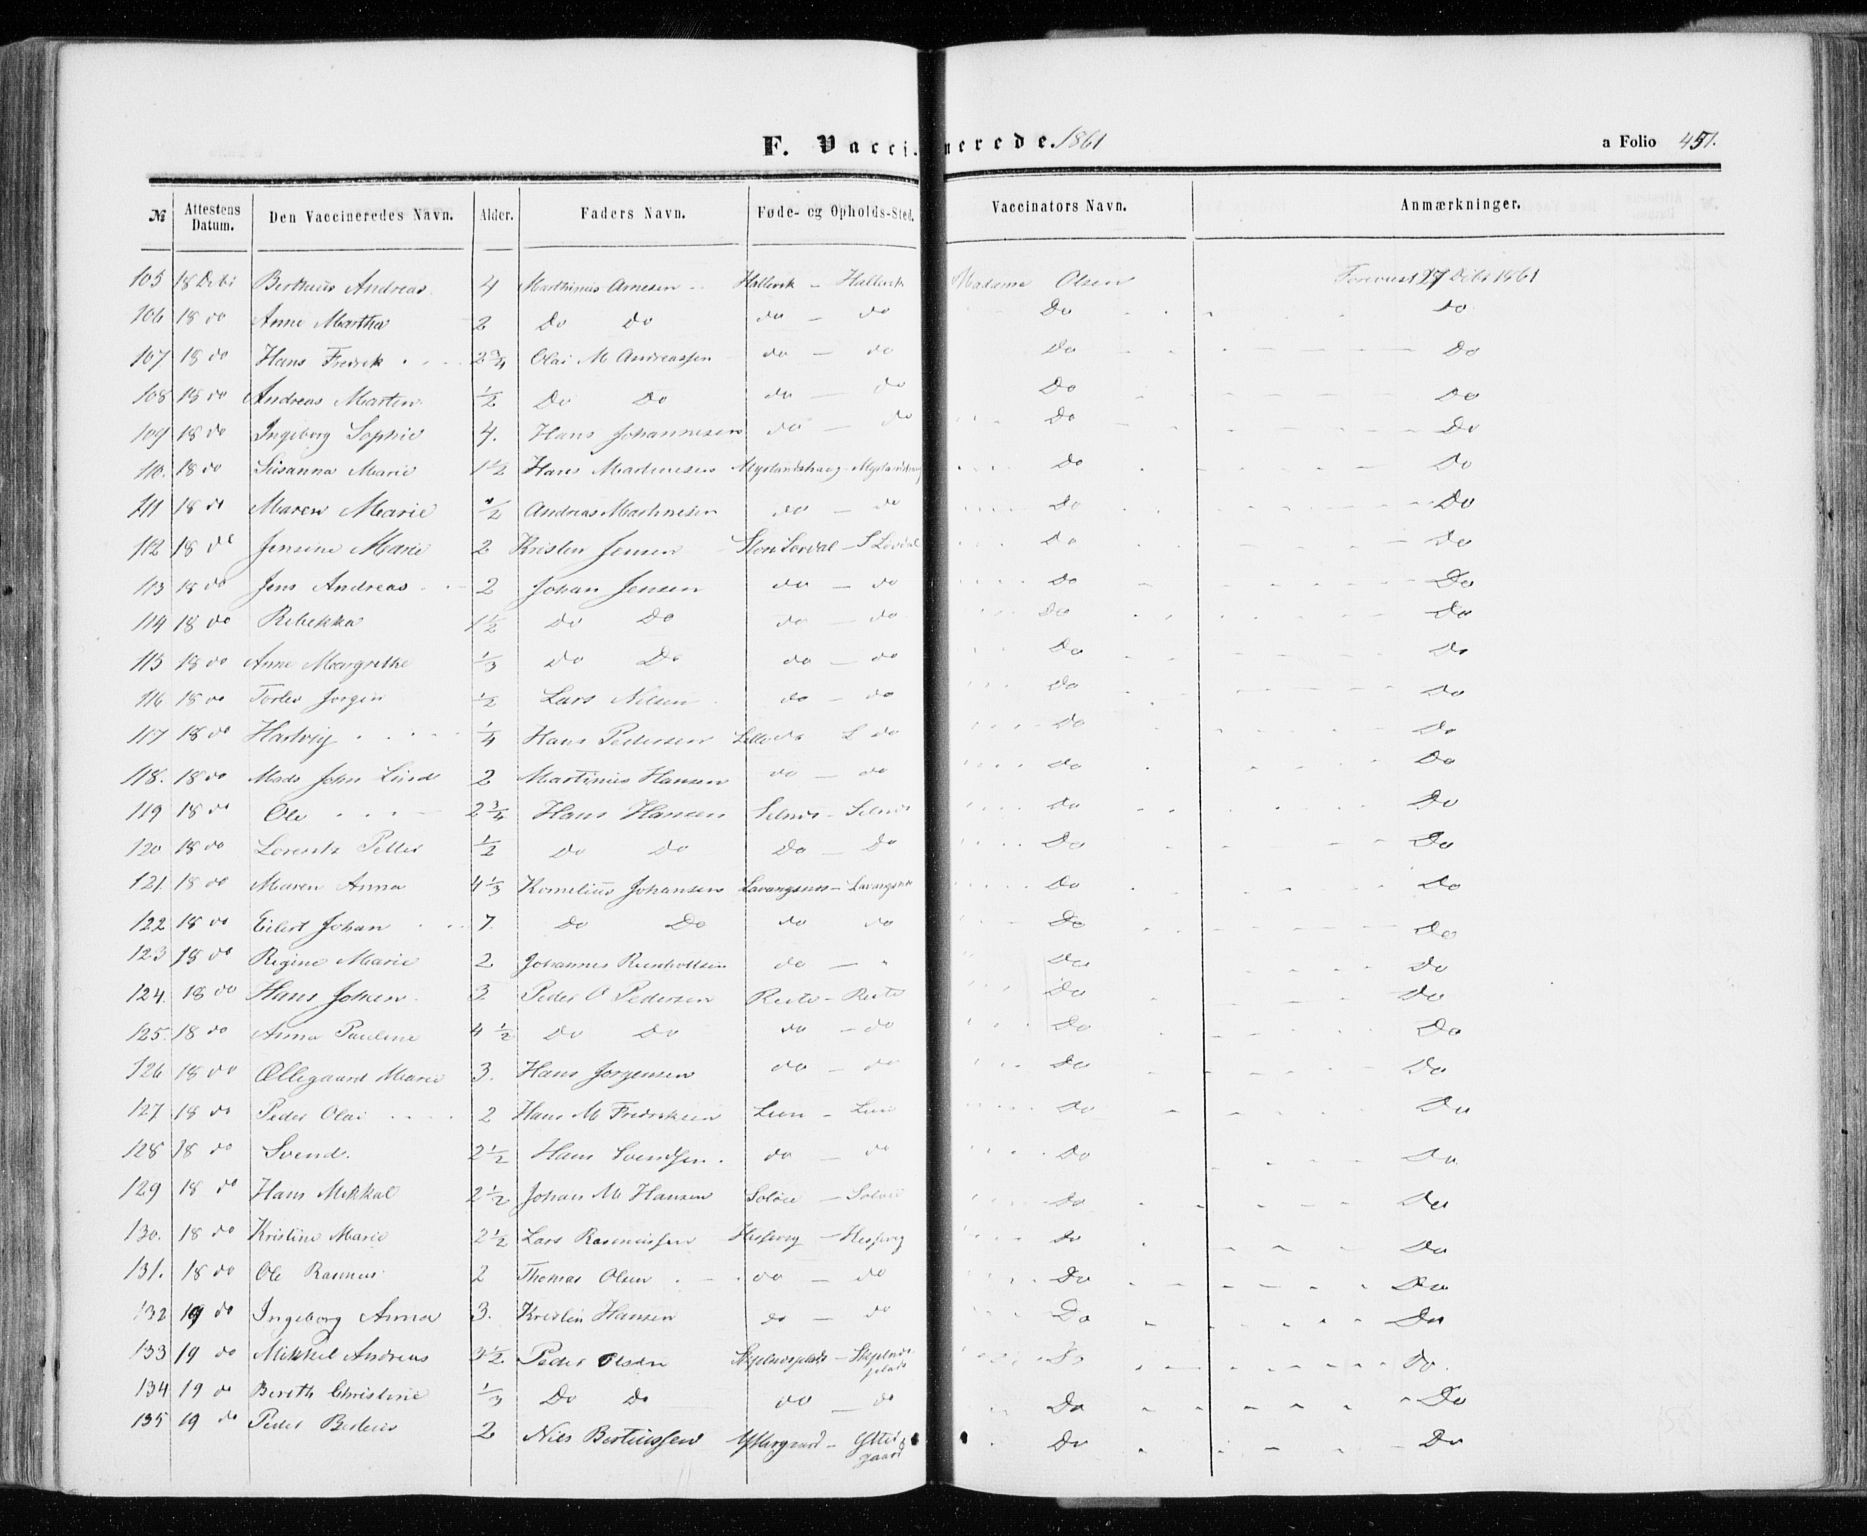 F. Vaccinerede. 1861
a Folio 451.
№ Attestens Datum. Den Vaccineredes Navn. Alder. Faders Navn. Føde- og Opholds-Sted. Vaccinators Navn. Anmærkninger.
105 18 Debr Bertheus Andreas 4 Marthinus Arnesen Hallevik - Hallevik Madame Olsen Forevist 27 Debr 1861
106 18 do Anne Martha 2 Do Do do - do Do Do
107 18 do Hans Fredrik 2 3/4 Olai M Andreassen do - do Do Do
108 18 do Andreas Marten 1/2 Do Do do - do Do Do
109 18 do Ingeborg Sophie 4. Hans Johannesen do - do Do Do
110. 18 do Susanna Marie 1 1/2 Hans Martinesen Do Do
111 18 do Maren Marie 1/2 Andreas Martinesen do - do Do Do
112 18 do Jensine Marie 2 Kristen Jensen Do Do
113 18 do Jens Andreas 2 Johan Jensen do - do Do Do
114 18 do Rebekka 1 1/2 Do Do do - do Do Do
115 18 do Anne Margrethe 1/3 Do Do do - do Do Do
116 18 do Jorgen 1/2 Lars Nilsen do - do Do Do
117 18 do Hartvig 1/4 Hans Pedersen Lille do L do Do Do
118. 18 do Mads John Lind 2 Martinus Hansen do - do Do Do
119 18 do Ole 2 3/4 Hans Hansen Selnes - Selnes Do Do
120 18 do Lorentz Petter 1/2 Do Do Do - Do Do Do
121 18 do Maren Anna 4 1/3 Kornelius Johansen Lavangsnes - Lavangsnes Do Do
122 18 do Eilert Johan 7. Do Do do do Do Do
123 18 do Regine Marie 2 Johannes Reinholtsen do - " Do Do
124. 18 do Hans Johan 3 Peder O Pedersen Do Do
125. 18 do Anna Pauline 4 1/2 Do Do do - do Do Do
126 18 do Ellegaard Marie 3. Hans Jorgensen do - do Do Do
127 18 do Peder Olai 2 Hans M Fredriksen Do Do
128 18 do Svend. 2 1/2 Hans Svendsen. do - do Do Do
129 18 do Hans Mikkal 2 1/2 Johan M Hansen Do Do
130. 18 do Kristine Marie 2 1/2 Lars Rasmussen Hessevig - Hessevig Do Do
131. 18 do Ole Rasmus 2 Thomas Olsen do - do Do Do
132 19 do Ingeborg Anna 3. Kristin Hansen do - do Do Do
133 19 do Mikkel Andreas 3 1/2 Peder Olsen Do Do.
134 19 do Bereth Christine 1/3 Do Do do - do Do Do
135 19 do Peder Berteus 2 Niels Berteussen Yttergaard - Ytter
gaard Do Do